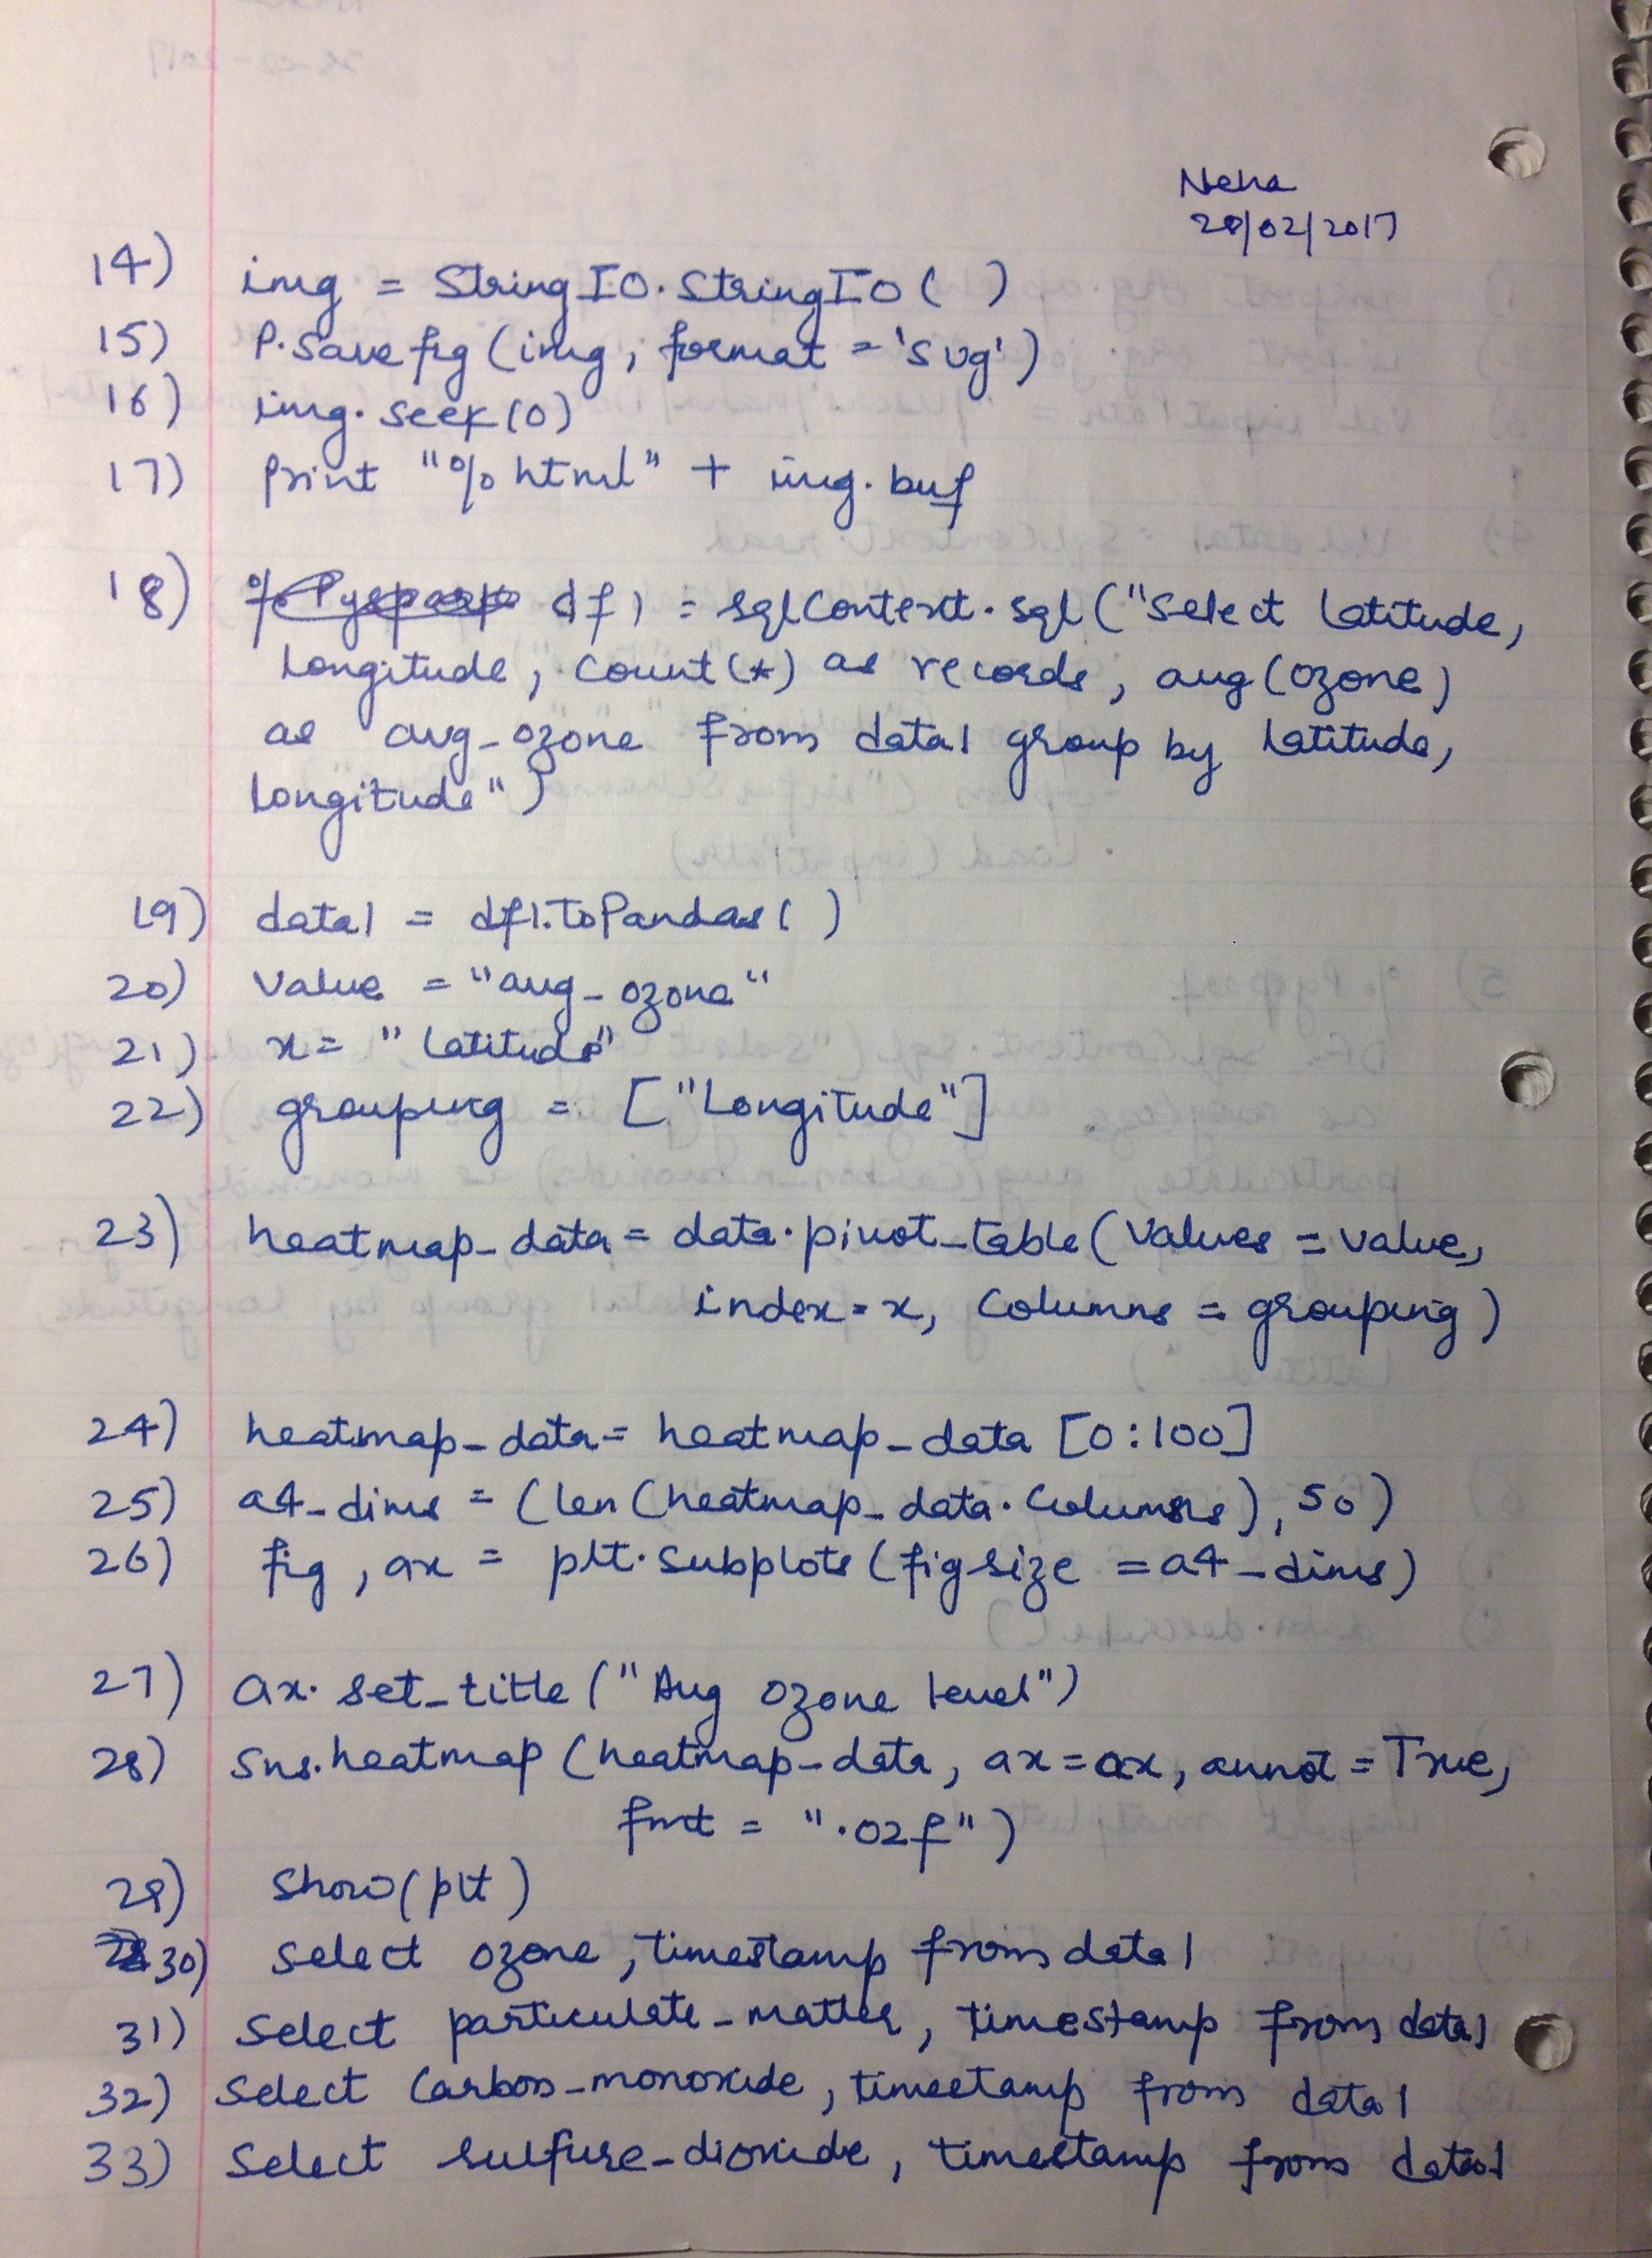 Neha
28/02/2017
14) img = StringIO.StringIO( )
15) P.savefig(img, format = 'svg')
16) img.seek(0)
17) Print "%html" + img.buf
18) df1 = sqlContext.sql("Select Latitude,
Longitude, count(*) as records, avg(ozone)
as avg_ozone from data1 group by Latitude,
Longitude")
19) data1 = df1.ToPandas( )
20) Value = "avg_ozone"
21) x = "Latitude"
22) grouping = ["Longitude"]
23) heatmap_data = data.pivot_table(Values = value,
index = x, Columns = grouping)
24) heatmap_data = heatmap_data [0:100]
25) a4_dims = (len(heatmap_data.Columns), 50)
26) fig, ax = plt.subplots(figsize = a4_dims)
27) ax.set_title("Avg Ozone level")
28) Sns.heatmap(heatmap_data, ax=ax, annot = True,
fmt = ".02f")
29) Show(plt)
30) Select ozone, timestamp from data1
31) Select particulate_matter, timestamp from data1
32) Select Carbon_monoxide, timestamp from data1
33) Select sulfure_dioxide, timestamp from data1